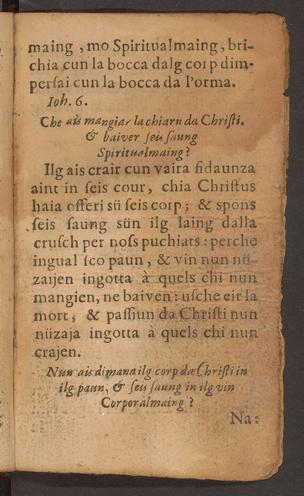 maing , mo Spiritualmaing, bri-
chia cun la bocca dalg corp dim-
persai cun la bocca da l'orma.
Ioh. 6.
Che ais mangiar la chiarn da Christi,
& baiver seis saung
Spiritualmaing?
Ilg ais crair cun vaira fidaunza
aint in seis cour, chia Christus
haia offeri sü seis corp; & spons
seis saung sün ilg laing dalla
crusch per noss puchiats : perche
ingual sco paun , & vin nun nü-
zaijen ingotta à quels chi nun
mangien, ne baiven: usche eir la
mort, & passiun da Christi nun
nüzaja ingotta à quels chi nun
crajen.
Nun ais dimana ilg corp da Christi in
ilg paun, & seis saung in ilg vin
Corporalmaing ?
Na: